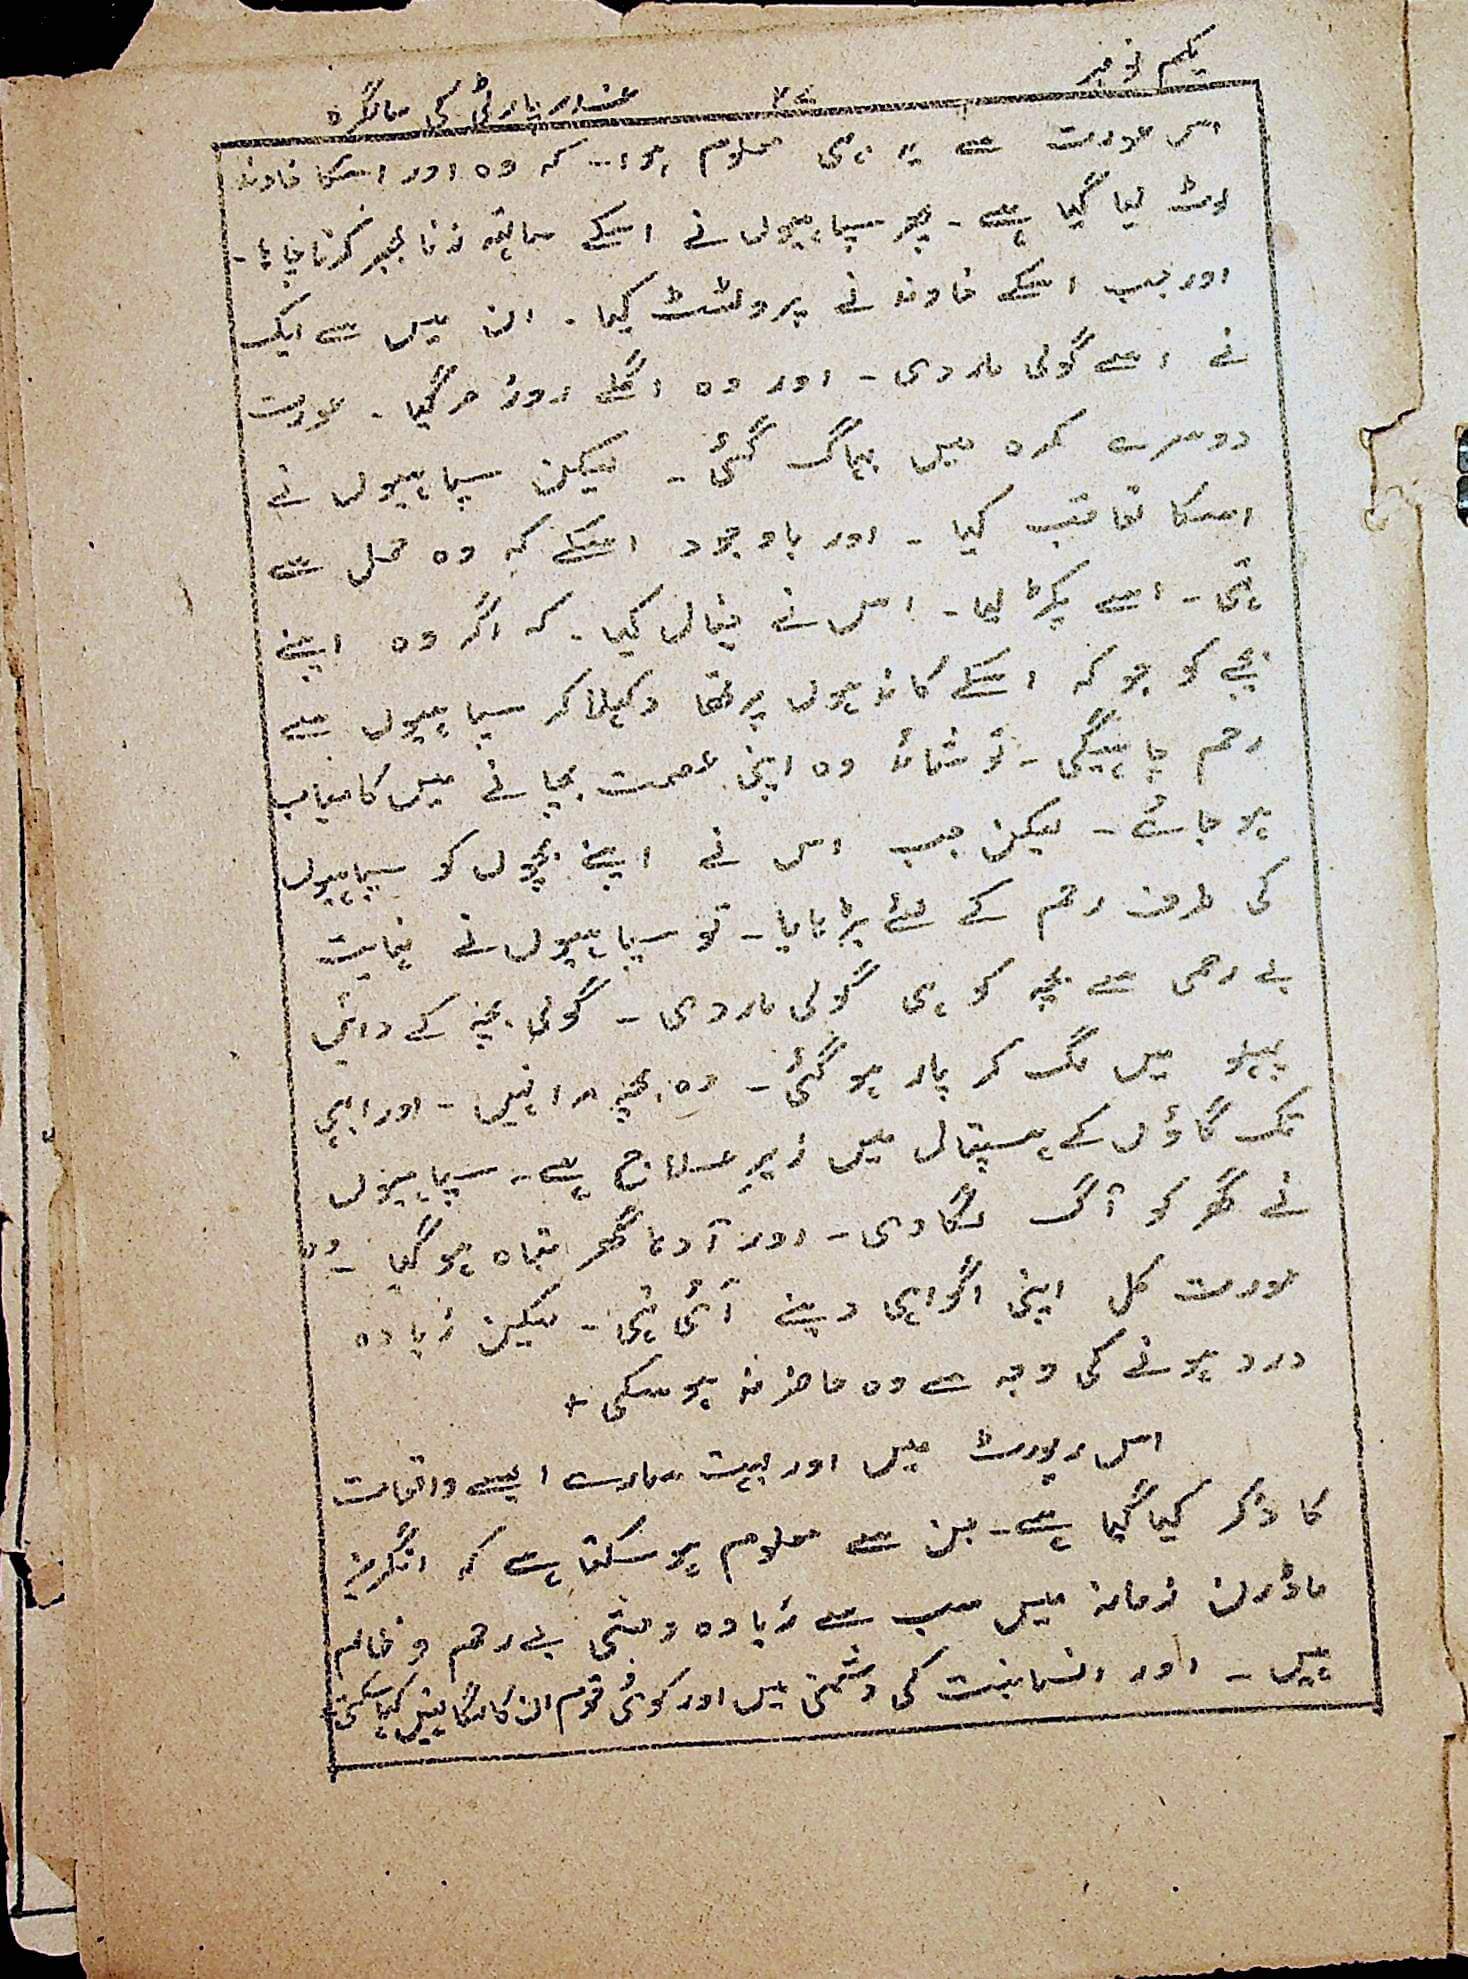 یکم نومبر ۲۷ غدر پارٹی کی سالگرہ
اس عورت سے یہ بھی معلوم ہوا۔ کہ وہ اور اسکا خاوند
لوٹ لیا گیا ہے۔ پھر سپاہیوں نے اسکے ساتھ زنا بجبر کرنا چاہا۔
اور جب اسکے خاوند نے پروٹسٹ کیا۔ ان میں سے ایک
نے اسے گولی مار دی۔ اور وہ اگلے روز مر گیا۔ عورت
دوسرے کمرہ میں بھاگ گئی۔ لیکن سپاہیوں نے
اسکا تعاقب کیا۔ اور باوجود اسکے کہ وہ حمل سے
تھی۔ اسے پکڑ لیا۔ اس نے خیال کیا۔ کہ اگر وہ اپنے
بچے کو جو کہ اسکے کاندھوں پر تھا دکھلا کر سپاہیوں سے
رحم چاہیگی۔ تو شائد وہ اپنی عصمت بچانے میں کامیاب
ہو جائے۔ لیکن جب اس نے اپنے بچوں کو سپاہیوں
کی طرف رحم کے لئے بڑھایا۔ تو سپاہیوں نے نہایت
بے رحمی سے بچہ کو ہی گولی مار دی۔ گولی بچہ کے دائیں
پہلو میں لگ کر پار ہو گئی۔ وہ بچہ مرا نہیں۔ اور ابھی
تک گاؤں کے ہسپتال میں زیر علاج ہے۔ سپاہیوں
نے گھر کو آگ لگا دی۔ اور آدھا گھر تباہ ہو گیا۔ وہ
عورت کل اپنی گواہی دینے آئی تھی۔ لیکن زیادہ
درد ہونے کی وجہ سے وہ حاضر نہ ہو سکی +
اس رپورٹ میں اور بہت سارے ایسے واقعات
کا ذکر کیا گیا ہے۔ جن سے معلوم ہو سکتا ہے کہ انگریز
ماڈرن زمانہ میں سب سے زیادہ وحشی بے رحم و ظالم
ہیں۔ اور انسانیت کی دشمنی میں اور کوئی قوم ان کا لگا نہیں کھا سکتی